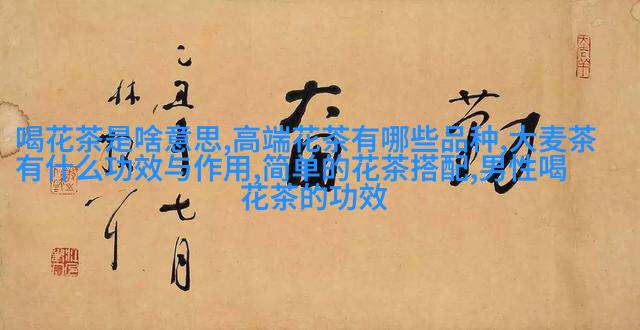 喝花茶是啥意思,高端花茶有哪些品种,大麦茶
有什么功效与作用,简单的花茶搭配,男性喝
花茶的功效
勤奋
乙丑年七月
林散耳